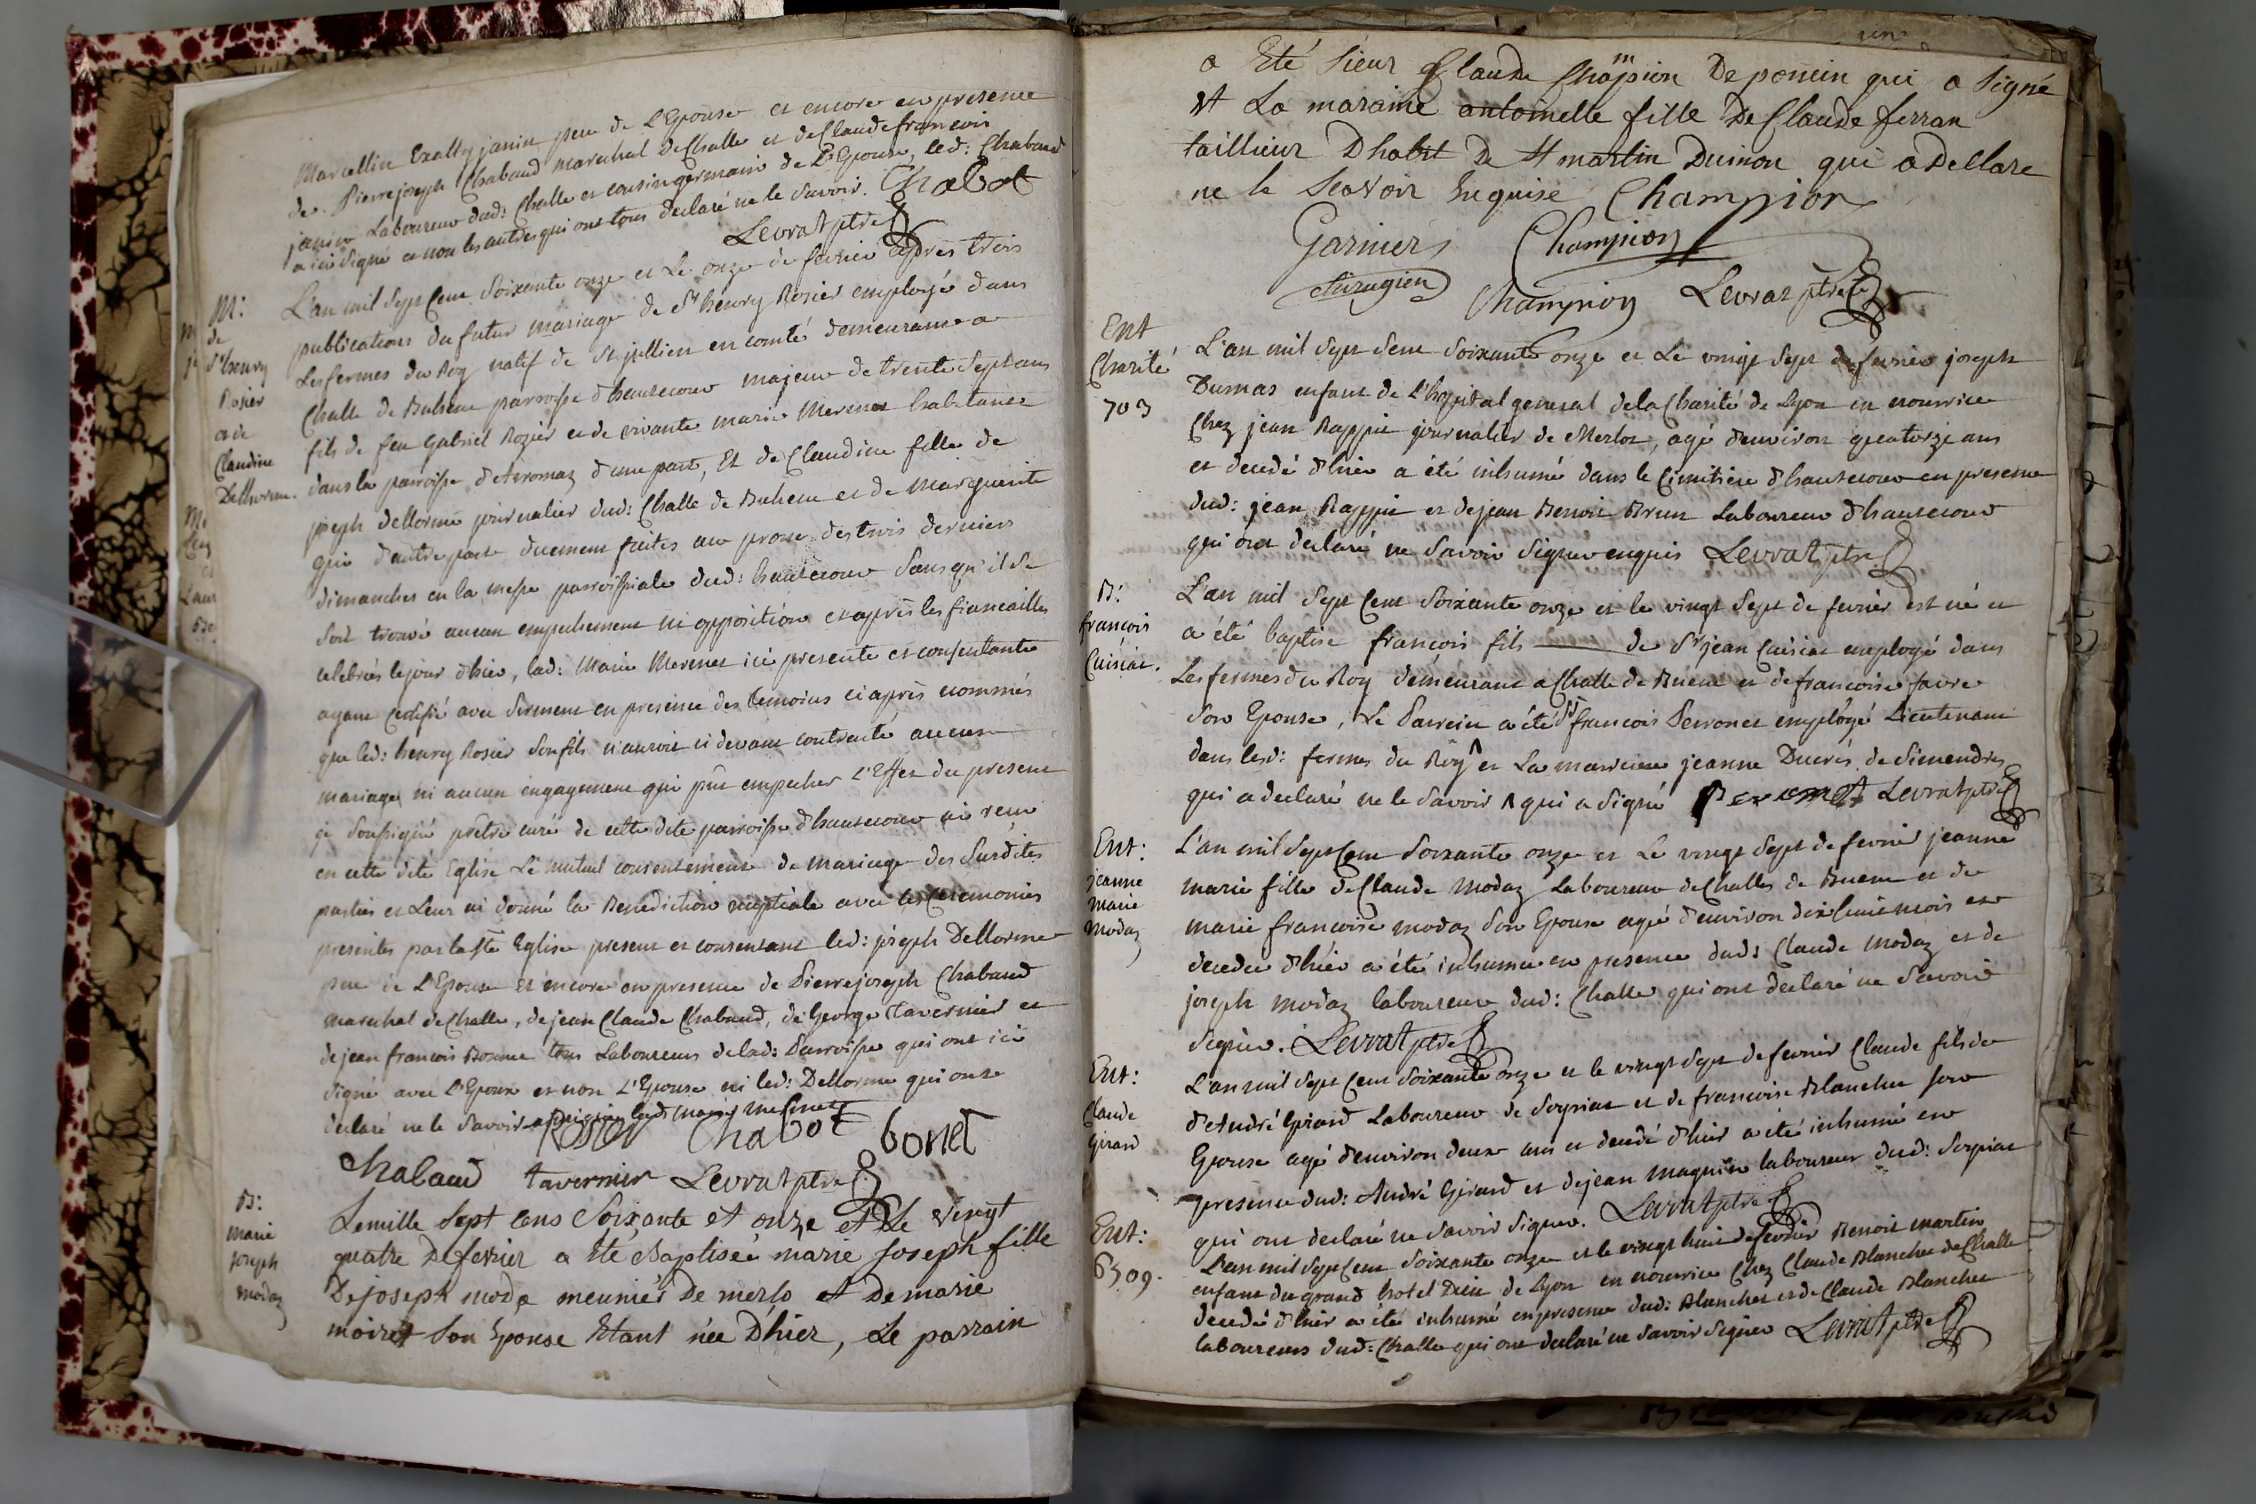 Marcellin Exaltz janin pere de L'Epouse et encore en presence
de Pierre joseph Chabaud marechal de Challe et de Claude francois
janin Laboureur dud: Challe et cousin germain de L'Epouse, led: Chabaud
a ici signé et non les autres qui ont tous declaré ne le savoir. Chabot
Levrat ptre
M:
de
Sr henry
Rosier
et de
Claudine
Dellorme.
L'an mil sept Cent soixante onze et Le onze de fevrier apres trois
publications du futur mariage de Sr henry Rosier employé dans
Les fermes du Roy natif de St jullien en comté demeurant a
Challe de Buhene parroisse d'hautecour majeur de trente sept ans
fils de feu Gabriel Rozier et de vivante marie Mermet habitante
dans la parroisse d'Arromaz d'une part, Et de Claudine fille de
joseph dellorme journalier dud: Challe de Buhene et de Marguerite
guin d'autre part duement faites au prone des trois derniers
dimanches en la messe parroissiale dud: hautecour sans qu'il se
soit trouvé aucun empechement ni opposition et apres les fiancailles
celebrées le jour d'hier, lad: Marie Mermet ici presente et consentante
ayant certifié avec serment en presence des temoins ci apres nommés
que led: henry Rosier son fils n'auroit ci devant contracté aucun
mariage, ni aucun engagement qui put empecher L'Effet du present
je soussigné prêtre curé de cette dite parroisse d'hautecour ai recu
en cette dite Eglise Le mutuel consentement de mariage des susdites
parties et Leur ai donné la Benediction nuptiale avec les ceremonies
presentes par la ste Eglise present et consentant led: joseph Dellorme
pere de L'Epouse et encore en presence de Pierre joseph Chabaud
marechal de Challe, de jean Claude Chabaud, de George Tavernier et
de jean francois Bonnet tous Laboureurs de lad: Parroisse qui ont ici
signé avec L'Epoux et non L'Epouse ni led: Dellorme qui ont
declaré ne le savoir ni lad: marie mermet
Rosier Chabot bonet
Chabaud tavernier Levrat ptre
B:
marie
joseph
modaz
Lemille Sept Cens Soixante et onze et Le vingt
quatre De fevrier a Eté Baptiseé marie Joseph fille
De joseph moda meunier De merlo et De marie
moiret Son Epouse Etant née D'hier, Le parrain
a Eté Sieur Claude Champion De poncin qui a Signé
et La maraine antoinette fille De Claude ferran
taillieur D'habit De St martin Dumon qui a Declare
ne le Scavoir Enquise Champion
Garnier Champion
chirugien Champion Levrat ptre
Ent
Charité
703
L'an mil sept Cent soixante onze et Le vingt sept de fevrier joseph
Dumas enfant de L'hopital general de la Charité de Lyon en nourrice
Chez jean Rappie journalier de Merloz, agé d'environ quatorze ans
et decedé d'hier a été inhumé dans le Cimitiere d'hautecour en presence
dud: jean Rappie et de jean Benoit Brun Laboureur d'hautecour
qui ont declaré ne savoir signer enquis Levrat ptre
B:
francois
Cuisiat.
L'an mil sept Cent soixante onze et le vingt sept de fevrier est né et
a été baptisé francois fils de Sr jean Cuisiat employé dans
Les fermes du Roy demeurant a Challe de Buene et de francoise favre
son Epouse, Le Parrein a été Sr francois Perronet employé Lieutenant
dans lesd: fermes du Roy ^ et La marreine jeanne Ducrés de Simendres
qui a declaré ne le savoir ^ qui a signé Peronet Levrat ptre
Ent:
jeanne
marie
modaz
L'an mil sept Cent soixante onze et Le vingt sept de fevrier jeanne
marie fille de Claude Modaz Laboureur de Challes de Buene et de
marie francoise modaz son Epouse agée d'environ dix huit mois et
decedée d'hier a été inhumée en presence dud: Claude Modaz et de
joseph modaz laboureur dud: Challe qui ont declaré ne savoir
signer. Levrat ptre
Ent:
Claude
Girard
L'an mil sept Cent soixante onze et le vingt sept de fevrier Claude fils de
d'André Girard Laboureur de Soyriat et de francoise Blanchet son
Epouse agé d'environ deux ans et decedé d'hier a été inhumé en
presence dud: André Girard et de jean maguin laboureur dud: Soyriat
qui ont declaré ne savoir signer. Levrat ptre
Ent:
6509.
L'an mil sept Cent soixante onze et le vingt huit de fevrier Benoit martin
enfant du grand hotel Dieu de Lyon en nourrice Chez Claude Blanchet de Challe
decedé d'hier a été inhumé en presence dud: Blanchet et de Claude Blanchet
laboureurs dud: Challe qui ont declaré ne savoir signer Levrat ptre